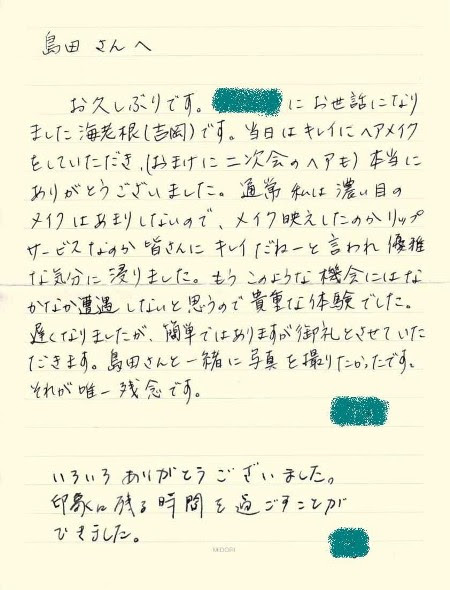 島田 さんへ
お久しぶりです。 にお世話になり
ました海老根(吉岡)です。当日はキレイにヘアメイク
をしていただき、(おまけに二次会のヘアも)本当に
ありがとうございました。通常 私は濃い目の
メイクはあまりしないので、メイク映えしたのかリップ
サービスなのか皆さんにキレイだねーと言われ 優雅
な気分に浸りました。もうこのような機会にはな
かなか遭遇しないと思うので貴重な体験でした。
遅くなりましたが、簡単ではありますが御礼とさせていた
だきます。島田さんと一緒に写真を撮りたかったです。
それが唯一残念です。
いろいろありがとうございました。
印象に残る時間を過ごすことが
できました。
MIDORI